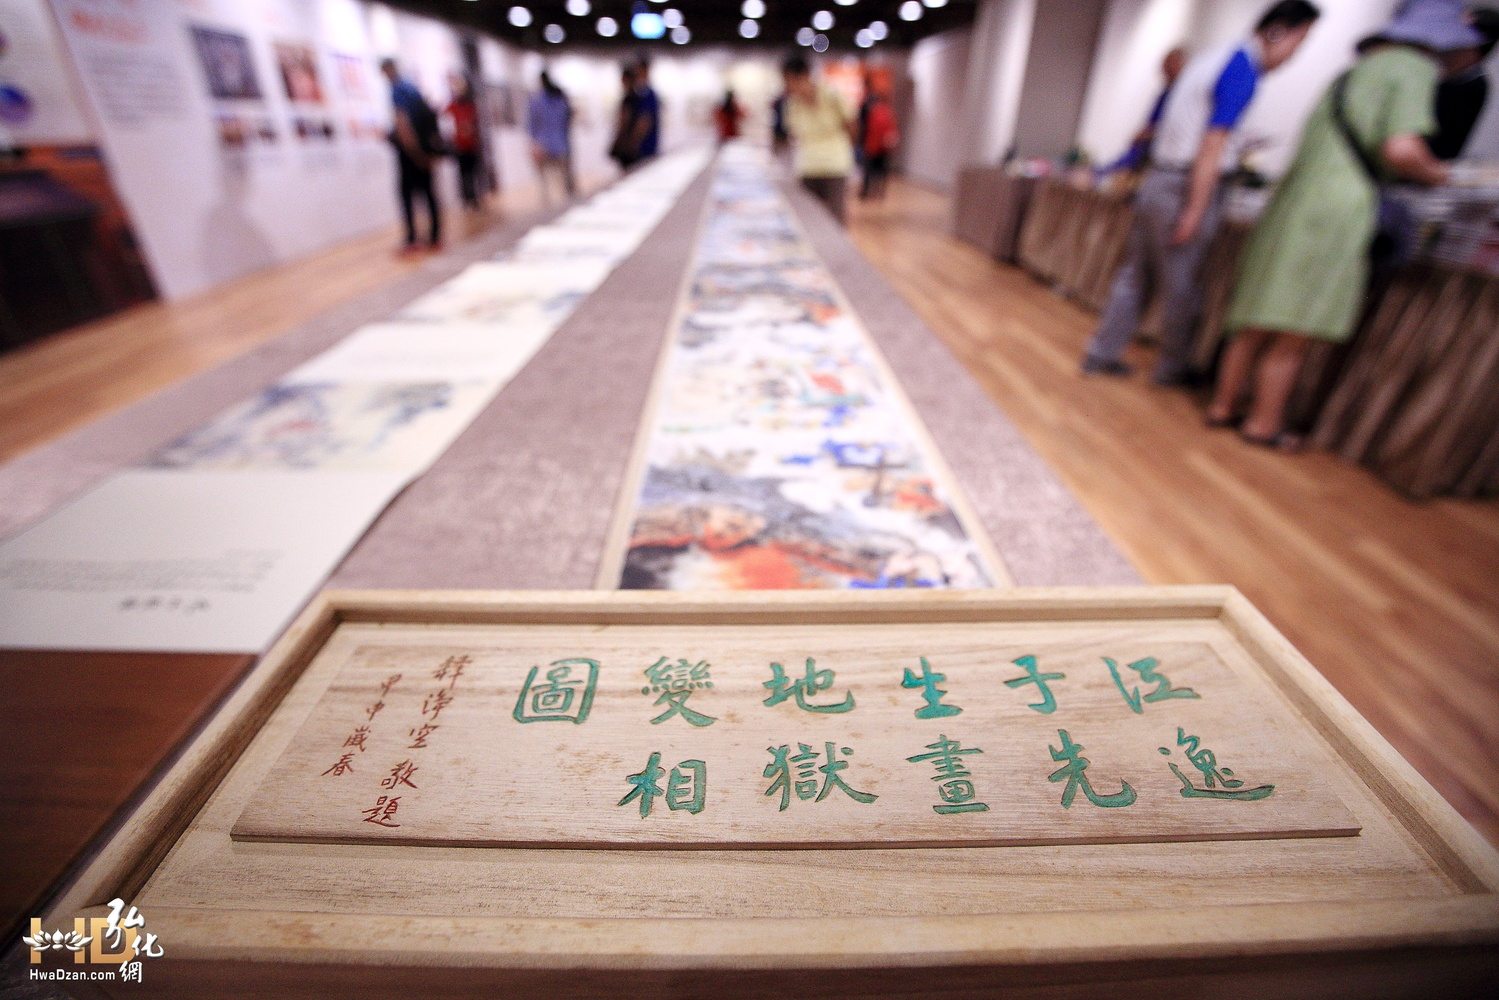 江逸
子先
生畫
地獄
變相
圖
釋淨空敬題
甲申歲春
HD
弘化網
HwaDzan.com